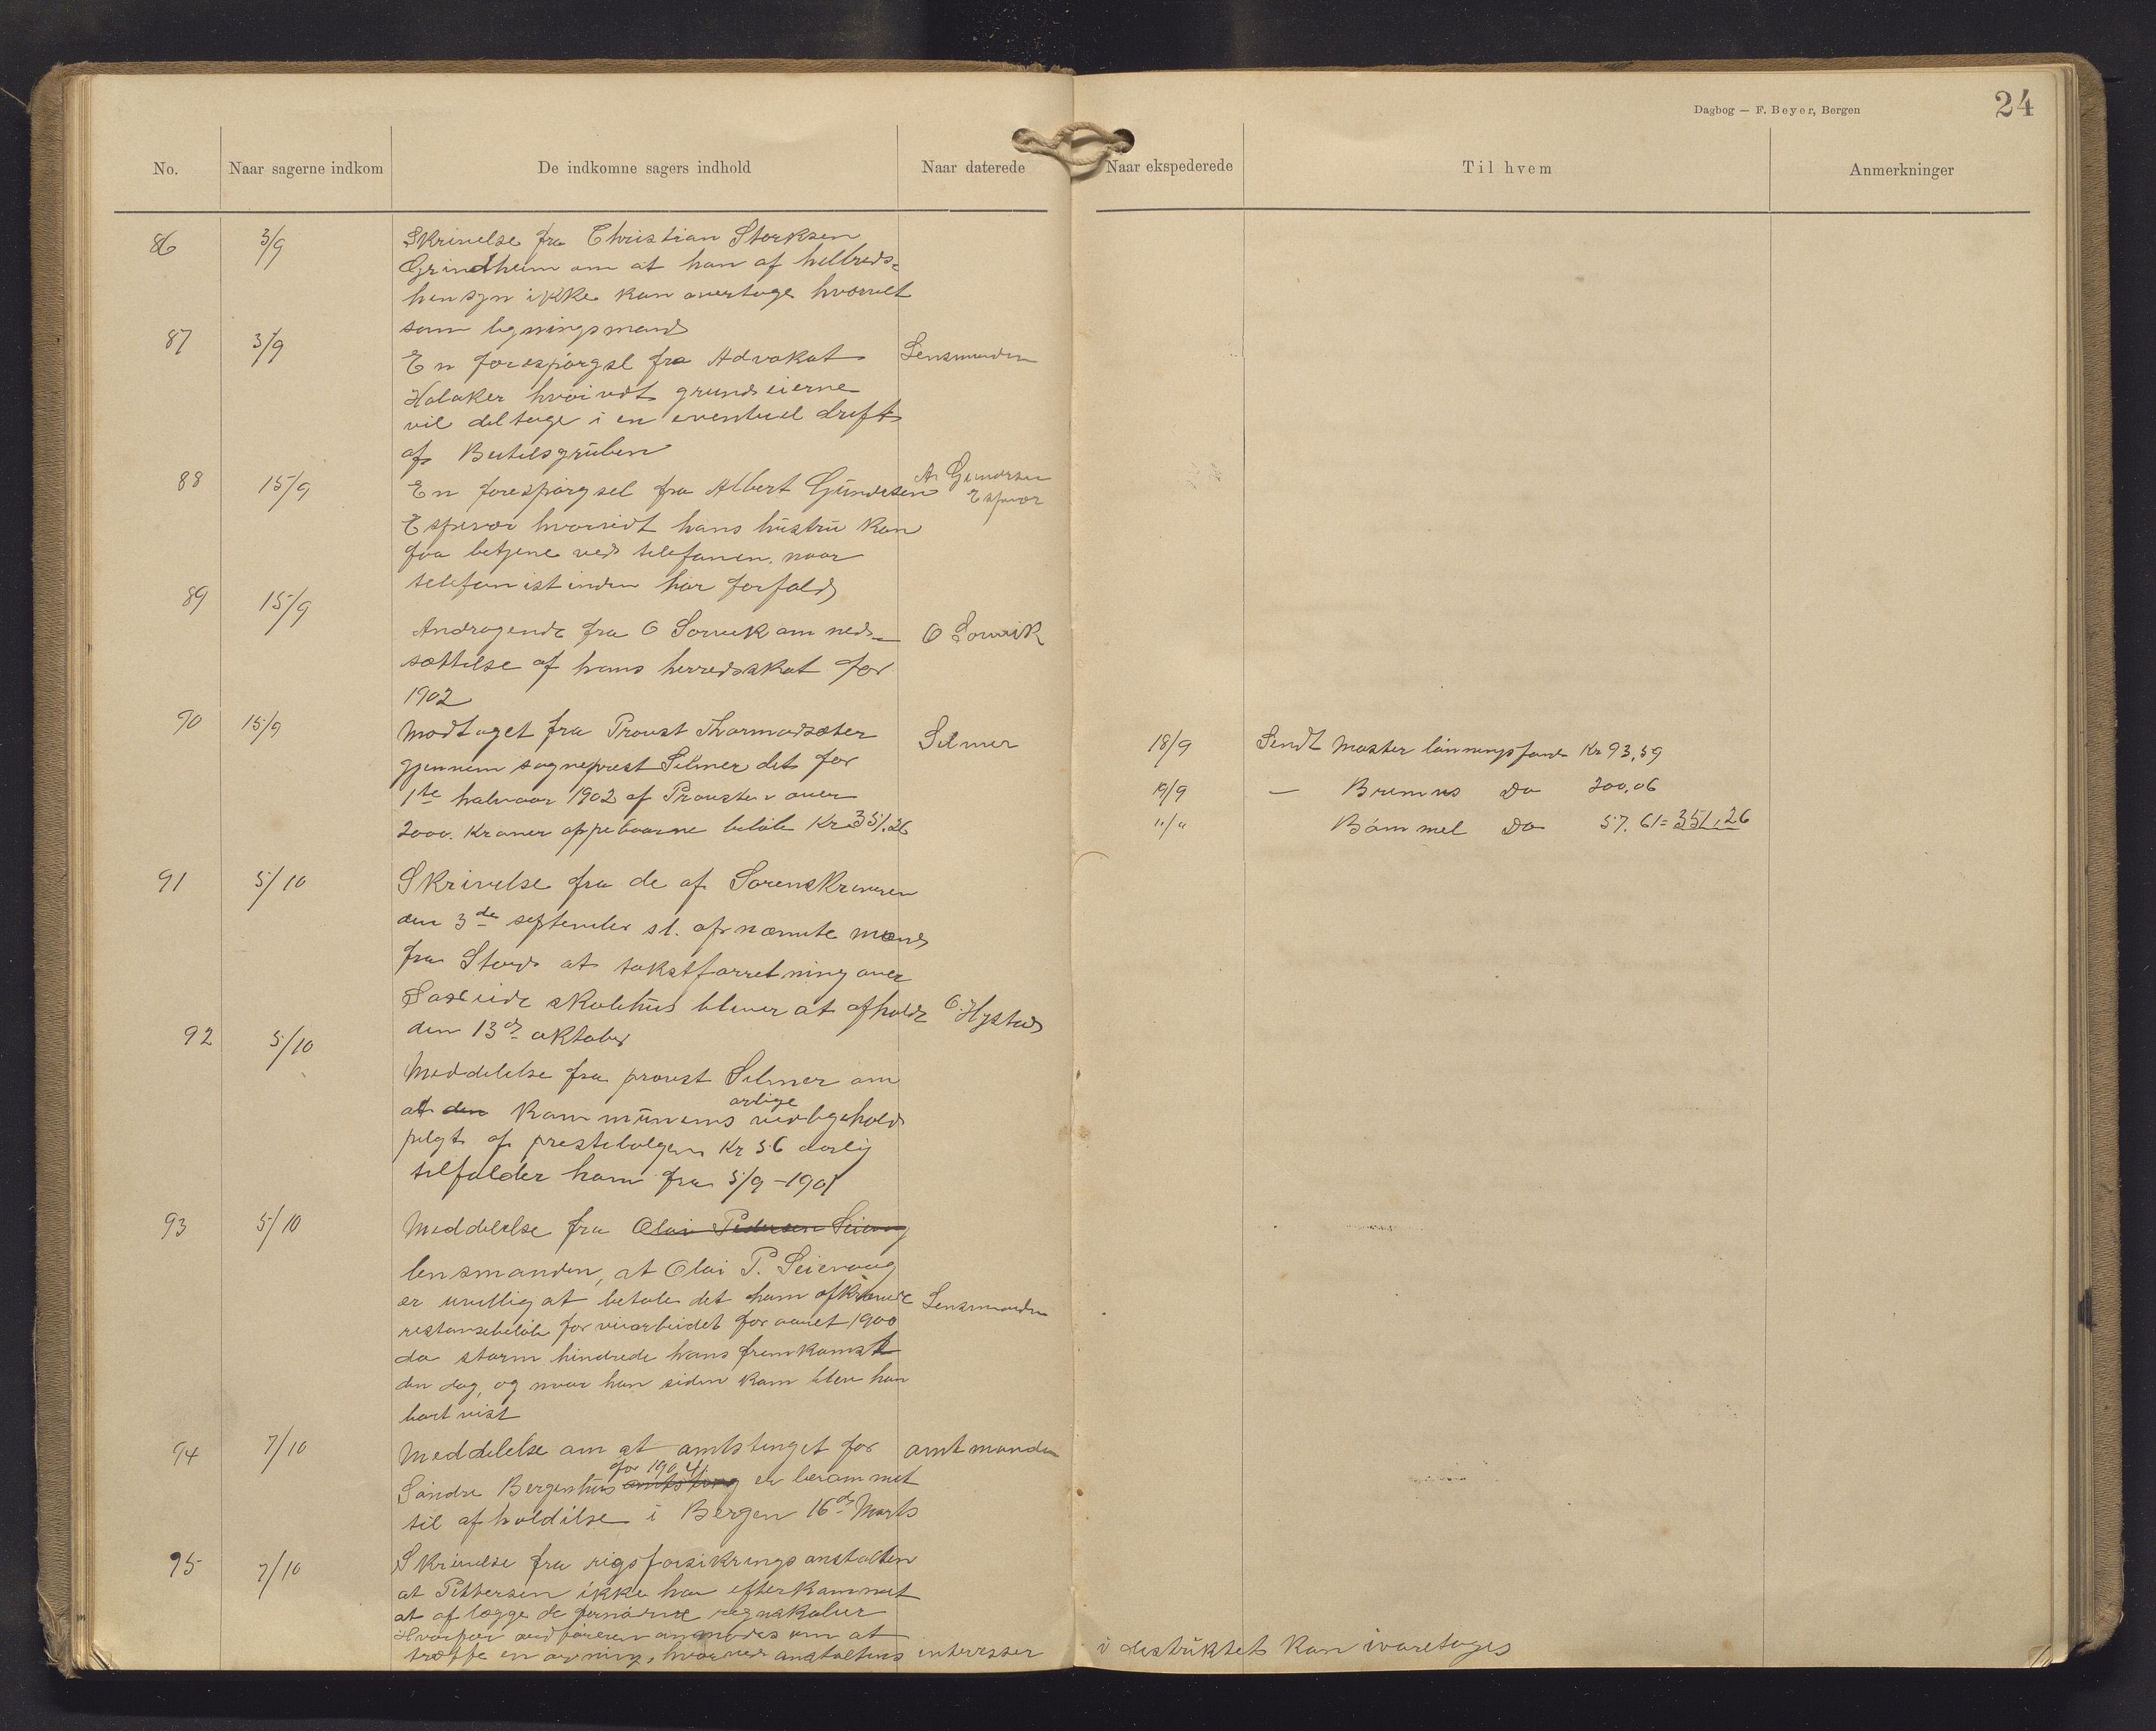 Dagbog — F. Beyer, Bergen
24
No. Naar sagerne indkom De indkomne sagers indhold Naar daterede Naar ekspederede Til hvem Anmerkninger
86 3/9 Skrivelse fra Christian Storksen
Grindheim om at han af helbreds-
hensyn ikke kan overtage hvervet
som ligningsmand
87 3/9 En forespørgsel fra Advokat Lensmanden
Holaker hvorvidt grundeierne
vil deltage i en eventuel drift
af
88 15/9 En forespørgsel fra Albert Gundersen A. Gundersen
Espevær hvorvidt hans hustru kan Espevær
faa betjene ved telefonen, naar
telefonistinden har forfald
89 15/9 Andragende fra O Sørvik om ned- O Sørvik
sættelse af hans herredsskat for
1902
90 15/9 Modtaget fra Provst Thormodsæter Selmer 18/9 Sendt Moster lønningsfond Kr 93,59
gjennem sogneprest Selmer det for 19/9 — Bremnes Do 200,06
1te halvaar 1902 af Provsten over "/" Bømmel Do 57.61 = 351,26
2000. Kroner oppebaarne beløb Kr 351.26
91 5/10 Skrivelse fra de af Sorenskriveren
den 3de september sl. opnævnte mænd
fra Stord at takstforretning over
skolehus bliver at afholde O. Hystad
den 13de oktober
92 5/10 Meddelelse fra provst Selmer om
at den kommunens vedligehold
pligt af prestebolgen Kr 56 aarlig
tilfalder ham fra 5/9-1901
93 5/10 Meddelelse fra Olai Pedersen Seievaag
lensmanden, at Olai P. Seievaag
er uvillig at betale det ham afkrævede Lensmanden
restansebeløb for veiarbeidet for aaret 1900
da storm hindrede hans fremkomst
den dag, og naar han siden kom blev han
bort vist
94 7/10 Meddelelse om at amtstinget for amtmanden
for 1904
Søndre Bergenhus amtsting er berammet
til afholdelse i Bergen 16de Marts
95 7/10 Skrivelse fra rigsforsikringsanstalten
at Pettersen ikke har efterkommet
at aflægge de regnskaber
Hvorfor ordføreren anmodes om at
træffe en ordning, hvorved anstaltens interesser i distriktet kan ivaretages